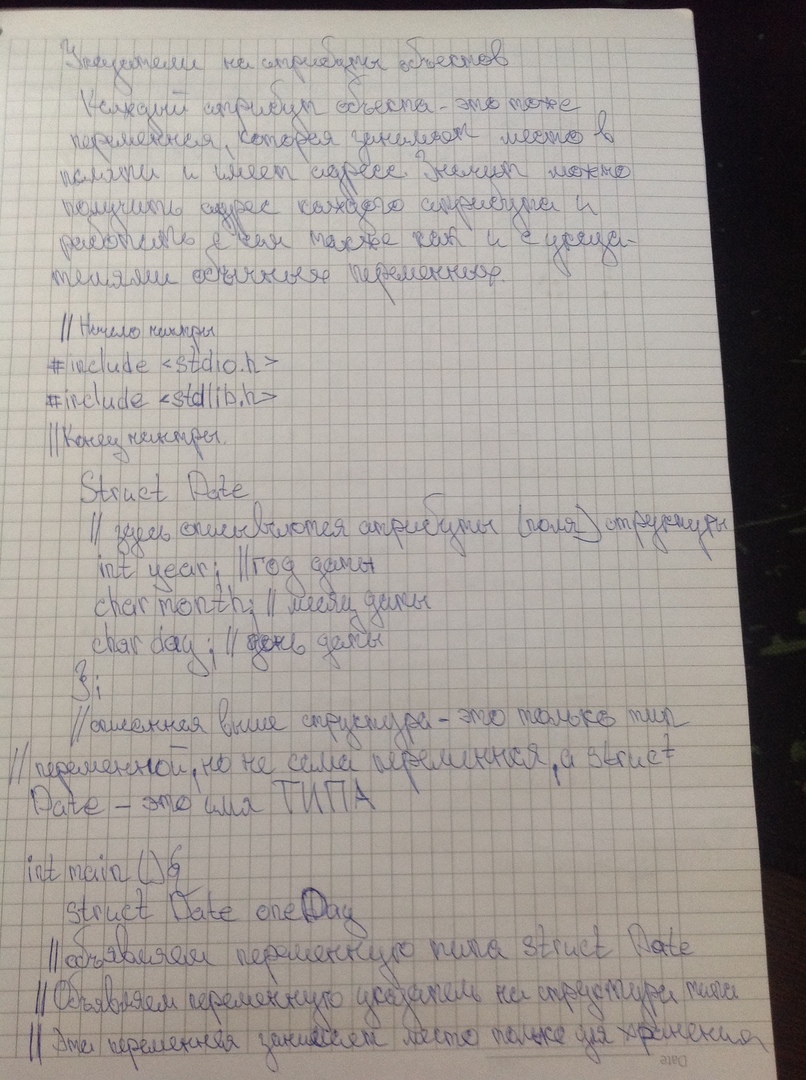 Указатели на атрибуты объектов
Каждый атрибут объекта - это тоже
переменная, которая занимает место в
памяти и имеет адрес. Значит можно
получить адрес каждого атрибута и
работать с ним также как и с указа-
телями обычных переменных.
//Начало
#include <stdio.h>
#include <stdlib.h>
//Конец
Struct Date
// здесь описываются атрибуты (поля) структуры
int year; //год даты
char month; // месяц даты
char day; // день даты
};
// выше структура - это только тип
// переменной, но не сама переменная, а struct
Date - это имя ТИПА
int main () {
struct Date oneDay
//объявляем переменную типа struct Date
//Объявляем переменную указатель на структура типа
// Эта переменная занимает место только для хранения
Date